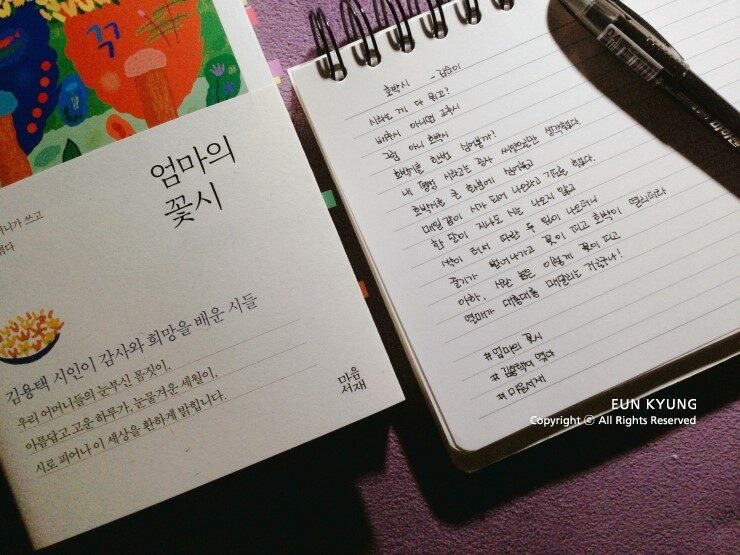 엄마의
꽃시
머니가 쓰고
김용택 시인이 감사와 희망을 배운 시들
우리 어머니들의 눈부신 몸짓이,
아름답고 고운 하루가, 눈물겨운 세월이,
시로 피어나 이 세상을 환하게 밝힙니다.
마음
서재
호박시 - 김순이
시라는 게 다 뭐고?
배추시 아니면 고추시
아니 호박시
호박씨를 한번 심어볼까?
내 평생 시라고는 종자 생각했다.
호박씨를 큰 화분에 심어놓고
매일같이 시가 되어 나오라고 기도를 했다.
한 달이 지나도 시는 나오지 않고
싹이 터서 파란 두 잎이 나오더니
줄기가 뻗어나가고 꽃이 피고 호박이 열리더라
아하, 시란 놈은 이렇게 꽃이 피고
열매가 대롱대롱 매달리는 거로구나!
#엄마의 꽃시
#김용택이 엮다
#마음서재
EUN KYUNG
Copyright ⓒ All Rights Reserved